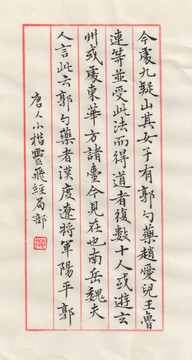 今處九疑山其女子有郭勺藥趙愛兒王魯
連等並受此法而得道者復數十人或遊玄
州或處東華方諸臺今見在也南岳魏夫
人言此云郭勺藥者漢度遼將軍陽平郭
唐人小楷靈飛經局部